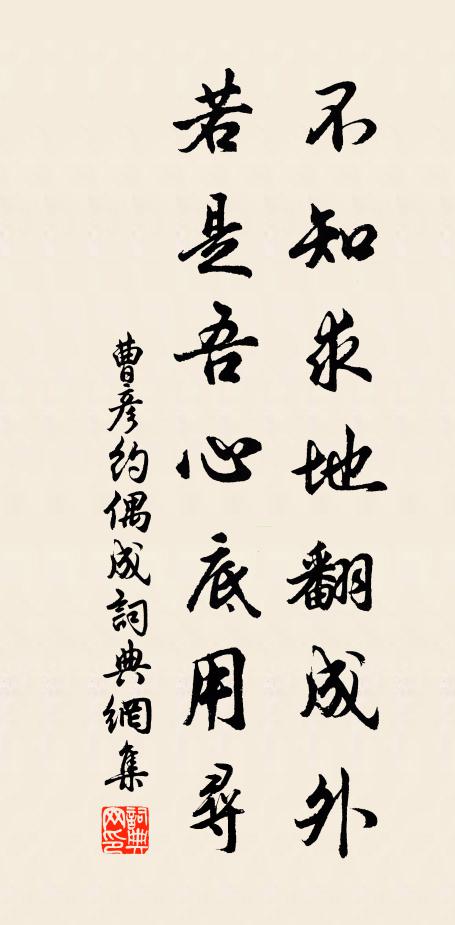 不知求地翻成外
若是吾心底用尋
曹彦約偶成詞典網集
詞典
网印